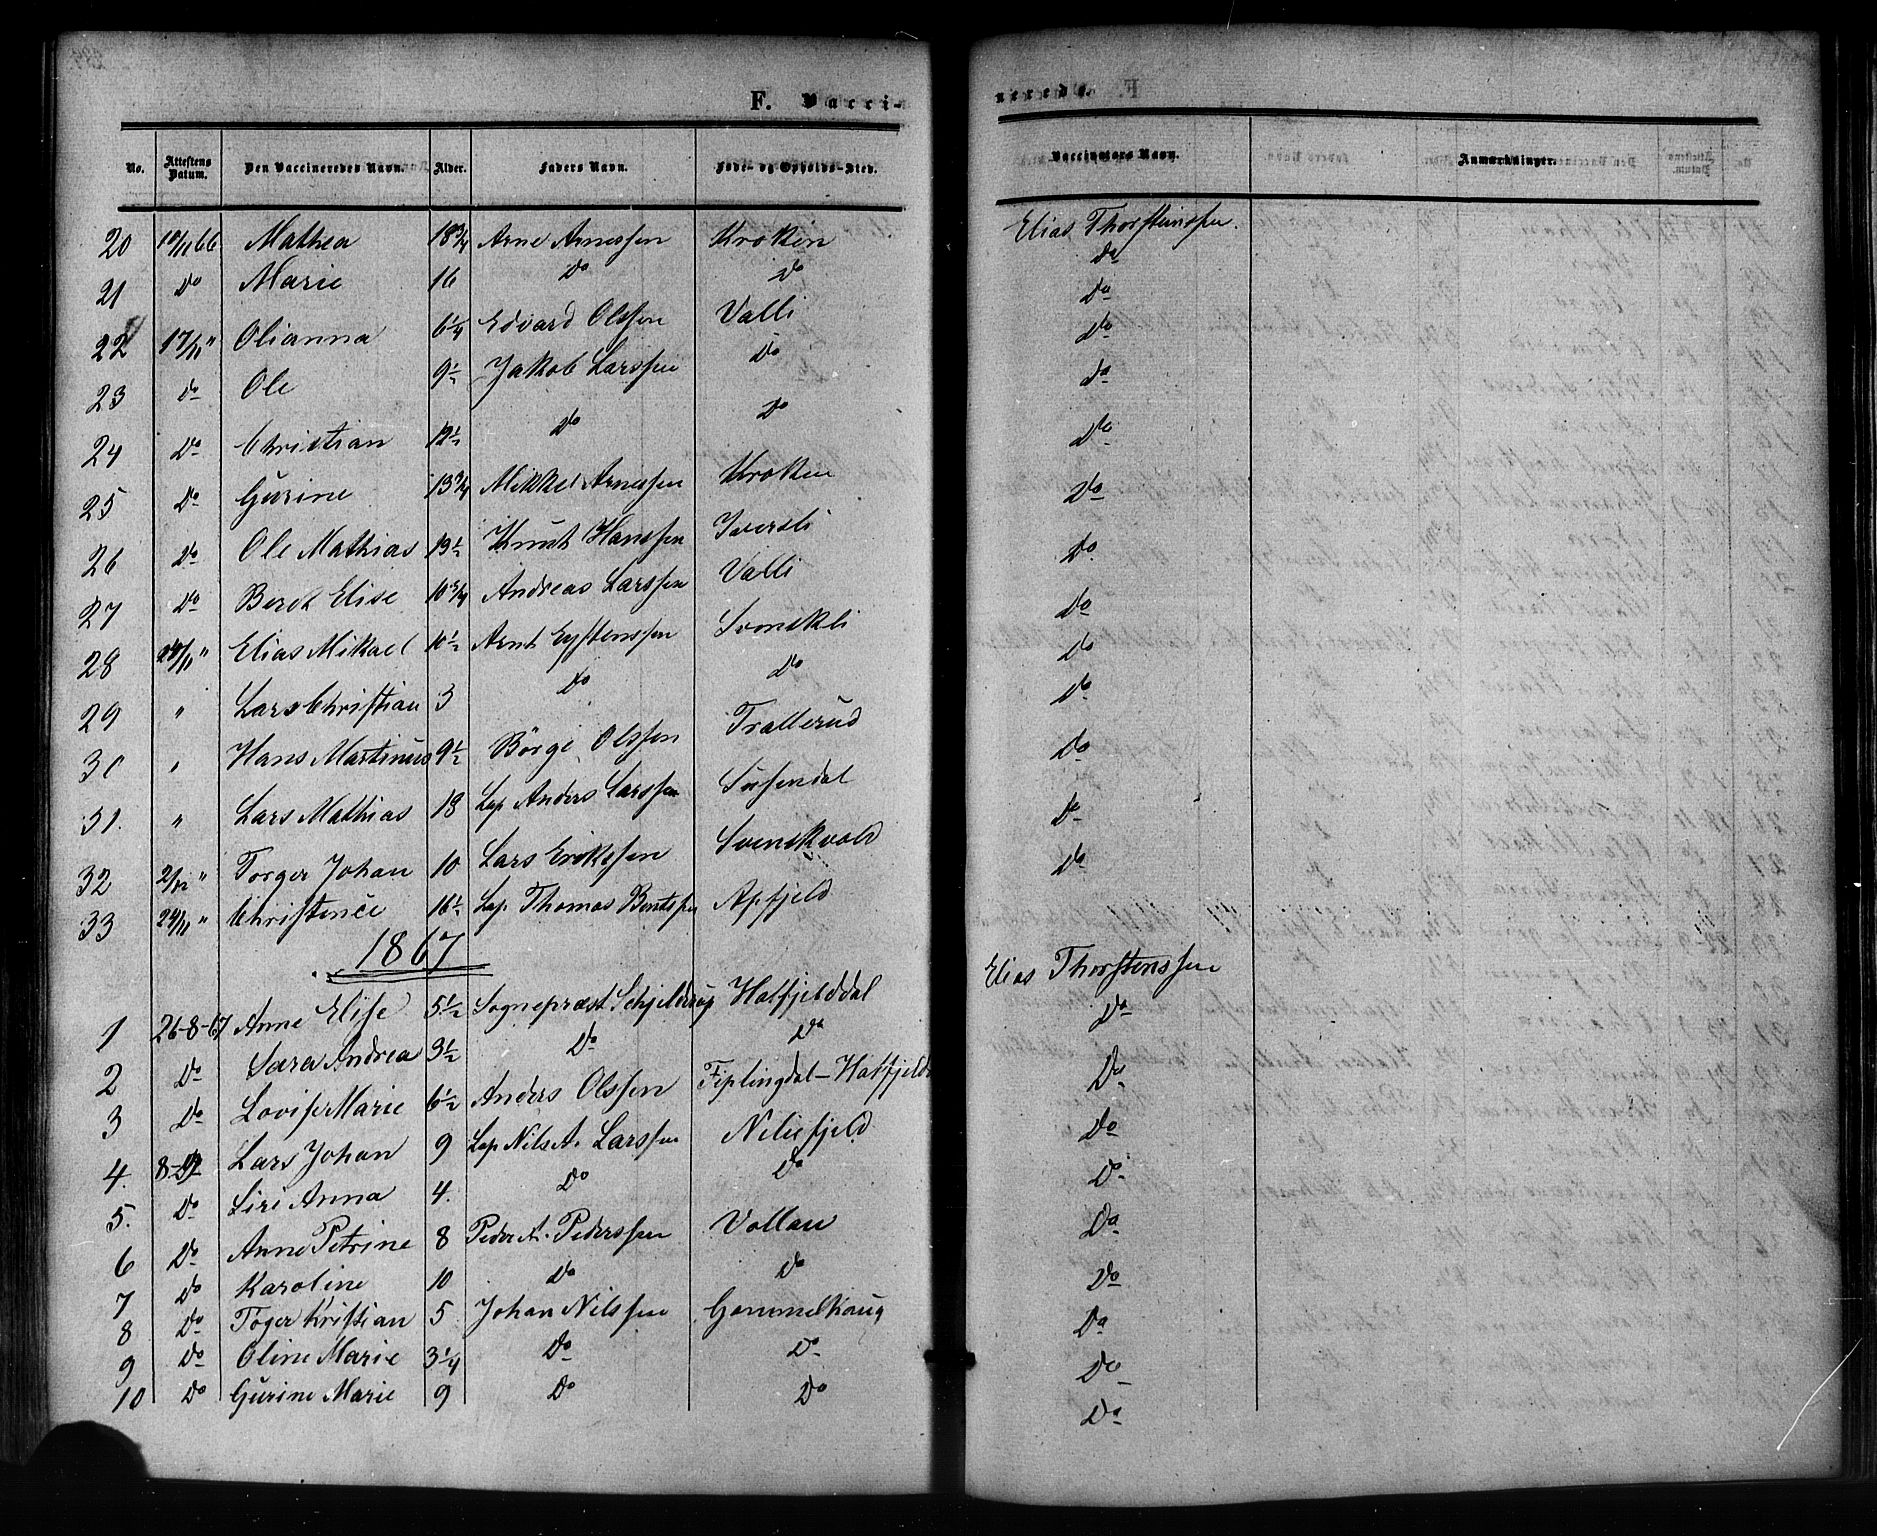 F. Vacci-
nerede.
No. Attestens Datum. Den Vaccineredes Navn. Alder. Faders Navn. Føde- og Opholds-Sted. Vaccinators Navn. Anmærkninger.
20 10/11 66 Mathea 18 3/4 Arne Arnessen Kroken Elias Thorsteinssen.
21 Do Marie 16 Do Do Do
22 17/11 " Olianna 6 1/4 Edvard Olssen Valli Do
23 do Ole 9 1/2 Jakob Larssen Do Do
24 Do Christian 12 1/2 Do Do Do
25 Do Gurine 13 3/4 Mikkel Arnessen Kroken Do
26 Do Ole Mathias 13 1/2 Knut Hanssen Iversli Do
27 Do Beret Elise 10 3/4 Andreas Larssen Valli Do
28 24/11 " Elias Mikael 10 1/2 Arnt Eystenssen Svenskli Do
29 " Lars Christian 3 Do Do Do
30 " Hans Martinus 9 1/2 Børge Olssen Trallerud Do
31. " Lars Mathias 18 Lap Anders Larssen Susendal Do
32 2/12 " Torger Johan 10 Lars Erikssen Svenskvold Do
33 24/11 " Christence 16 1/2 Lap Thomas Bentssen Apfjeld Do
1867
1 26-8-67 Anne Elise 5 1/2 Sognepræst Schjelderup Hatfjelddal Elias Thorstenssen
2 Do Sara Andrea 3 1/2 Do Do Do
3 Do Lovise Marie 6 1/2 Anders Olssen Fiplingdal-Hatfjeldd Do
4. 8- Lars Johan 9 Lap Nils A. Larssen Do
5. Do Siri Anna 4. Do Do Do
6 Do Anne Petrine 8 Peder A. Pederssen Vollan Do
7 Do Karoline 10 Do Do Do
8 Do Toger Kristian 5 Johan Nilssen Gammelhaug Do
9 Do Oline Marie 3 1/4 Do Do Do
10 Do Gurine Marie 9 Do Do Do